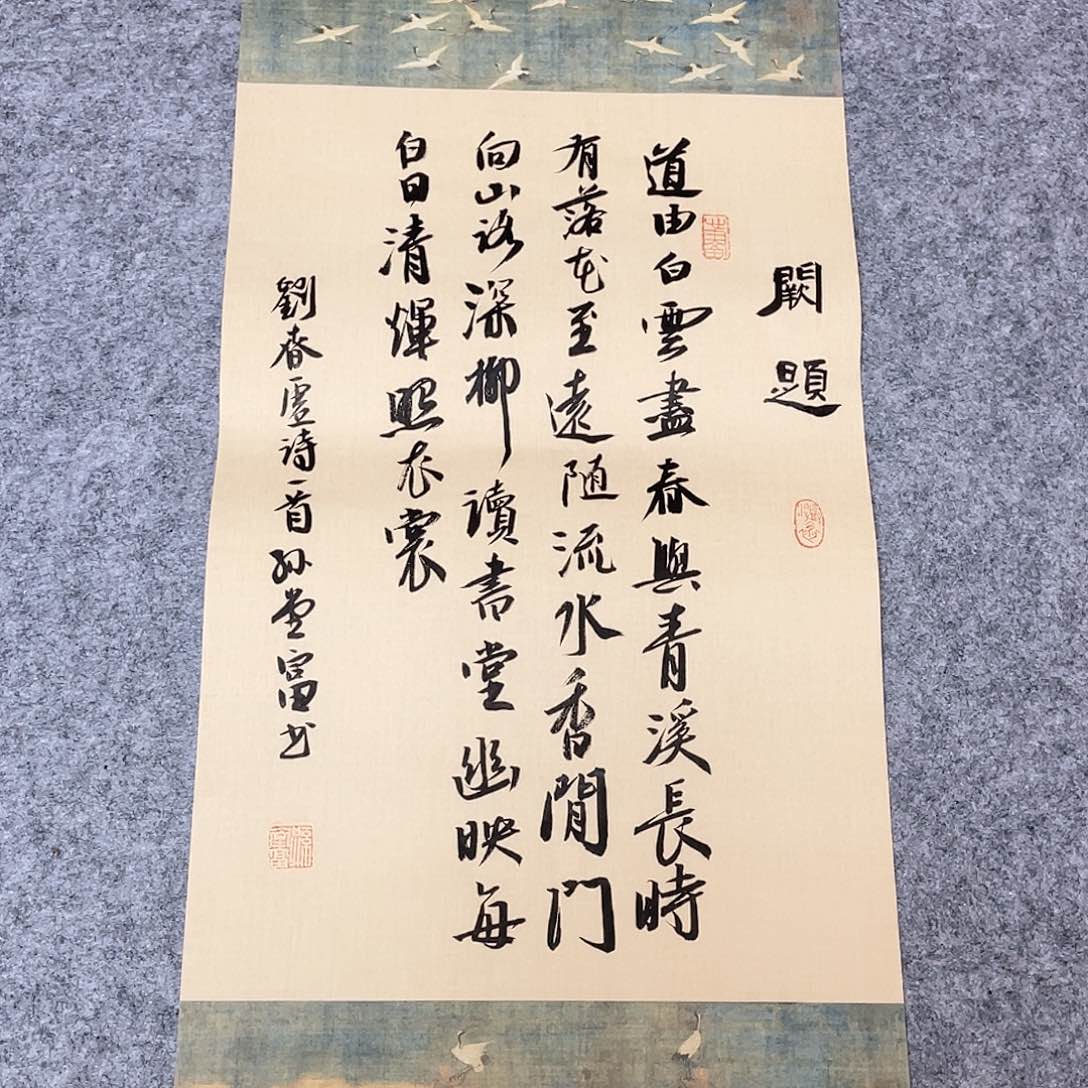 闕題
道由白雲盡春與青溪長時
有落花至遠随流水香閒门
向山路深柳讀書堂幽映每
白日清煇照衣裳
劉春虛诗一首孙堂富书